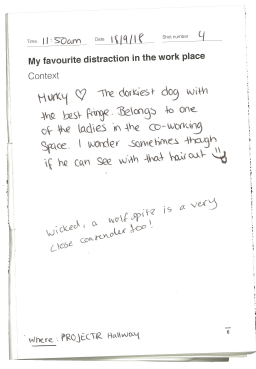 Time 11:50am Date 18/9/18 Shot number 4
My favourite distraction in the work place
Context
Hunky ♡ The dorkiest dog with
the best fringe. Belongs to one
of the ladies in the co-working
space. I wonder sometimes though
if he can see with that haircut
Wicked, a wolf spitz is a very
close contender too!
Where: PROJECTR Hallway